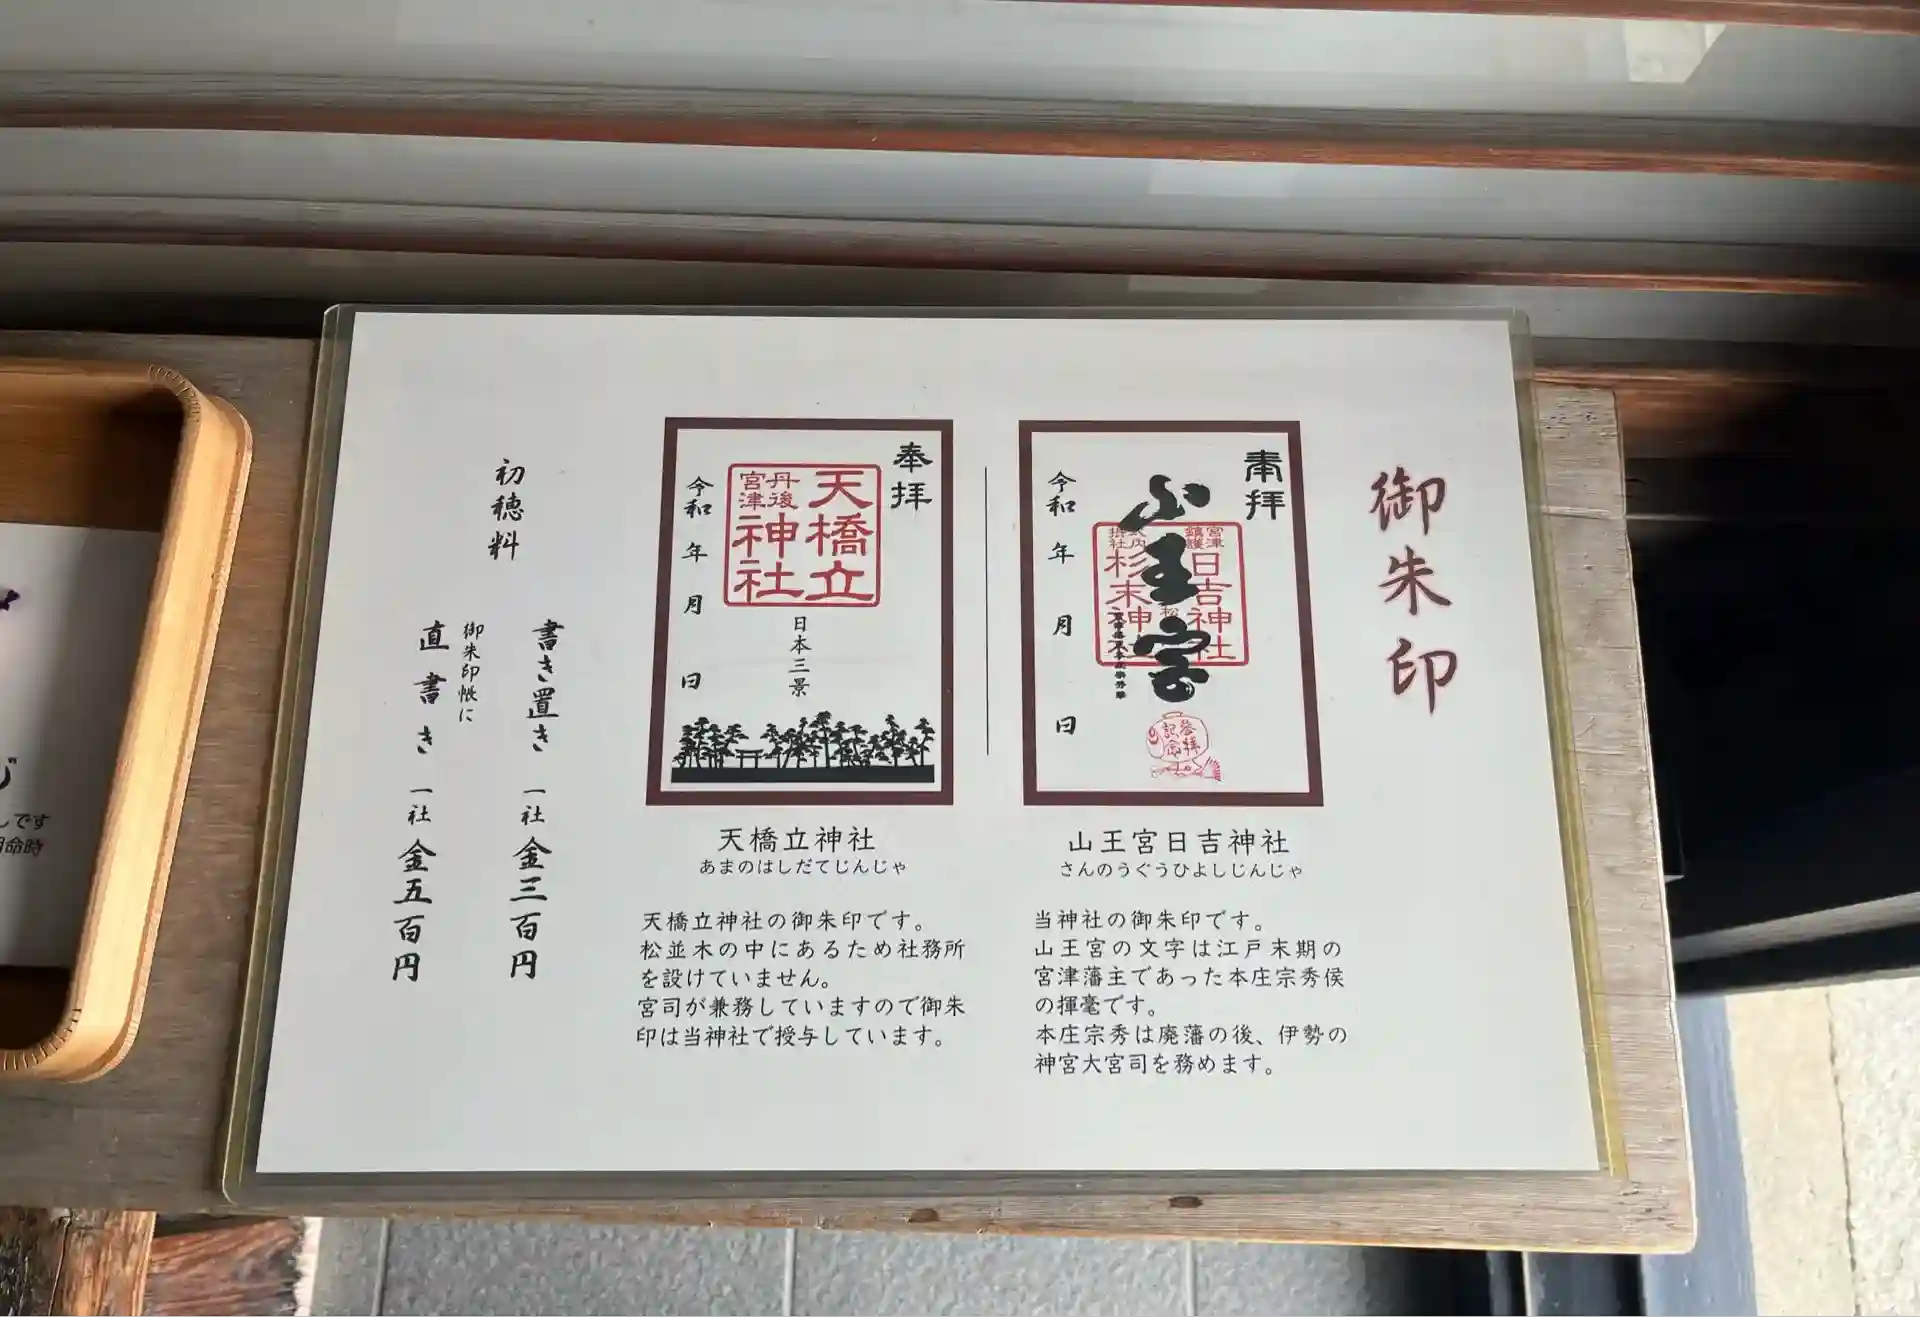 御朱印
奉拝
山王宮
宮津
鎮護
日吉神社
式内
摂社
杉末神社
令和 年 月 日
参拝
記念
山王宮日吉神社
さんのうぐうひよしじんじゃ
当神社の御朱印です。
山王宮の文字は江戸末期の
宮津藩主であった本庄宗秀侯
の揮毫です。
本庄宗秀は廃藩の後、伊勢の
神宮大宮司を務めます。
奉拝
天橋立
丹後
宮津
神社
日本三景
令和 年 月 日
天橋立神社
あまのはしだてじんじゃ
天橋立神社の御朱印です。
松並木の中にあるため社務所
を設けていません。
宮司が兼務していますので御朱
印は当神社で授与しています。
初穂料
書き置き 一社 金三百円
御朱印帳に
直書き 一社 金五百円
しです